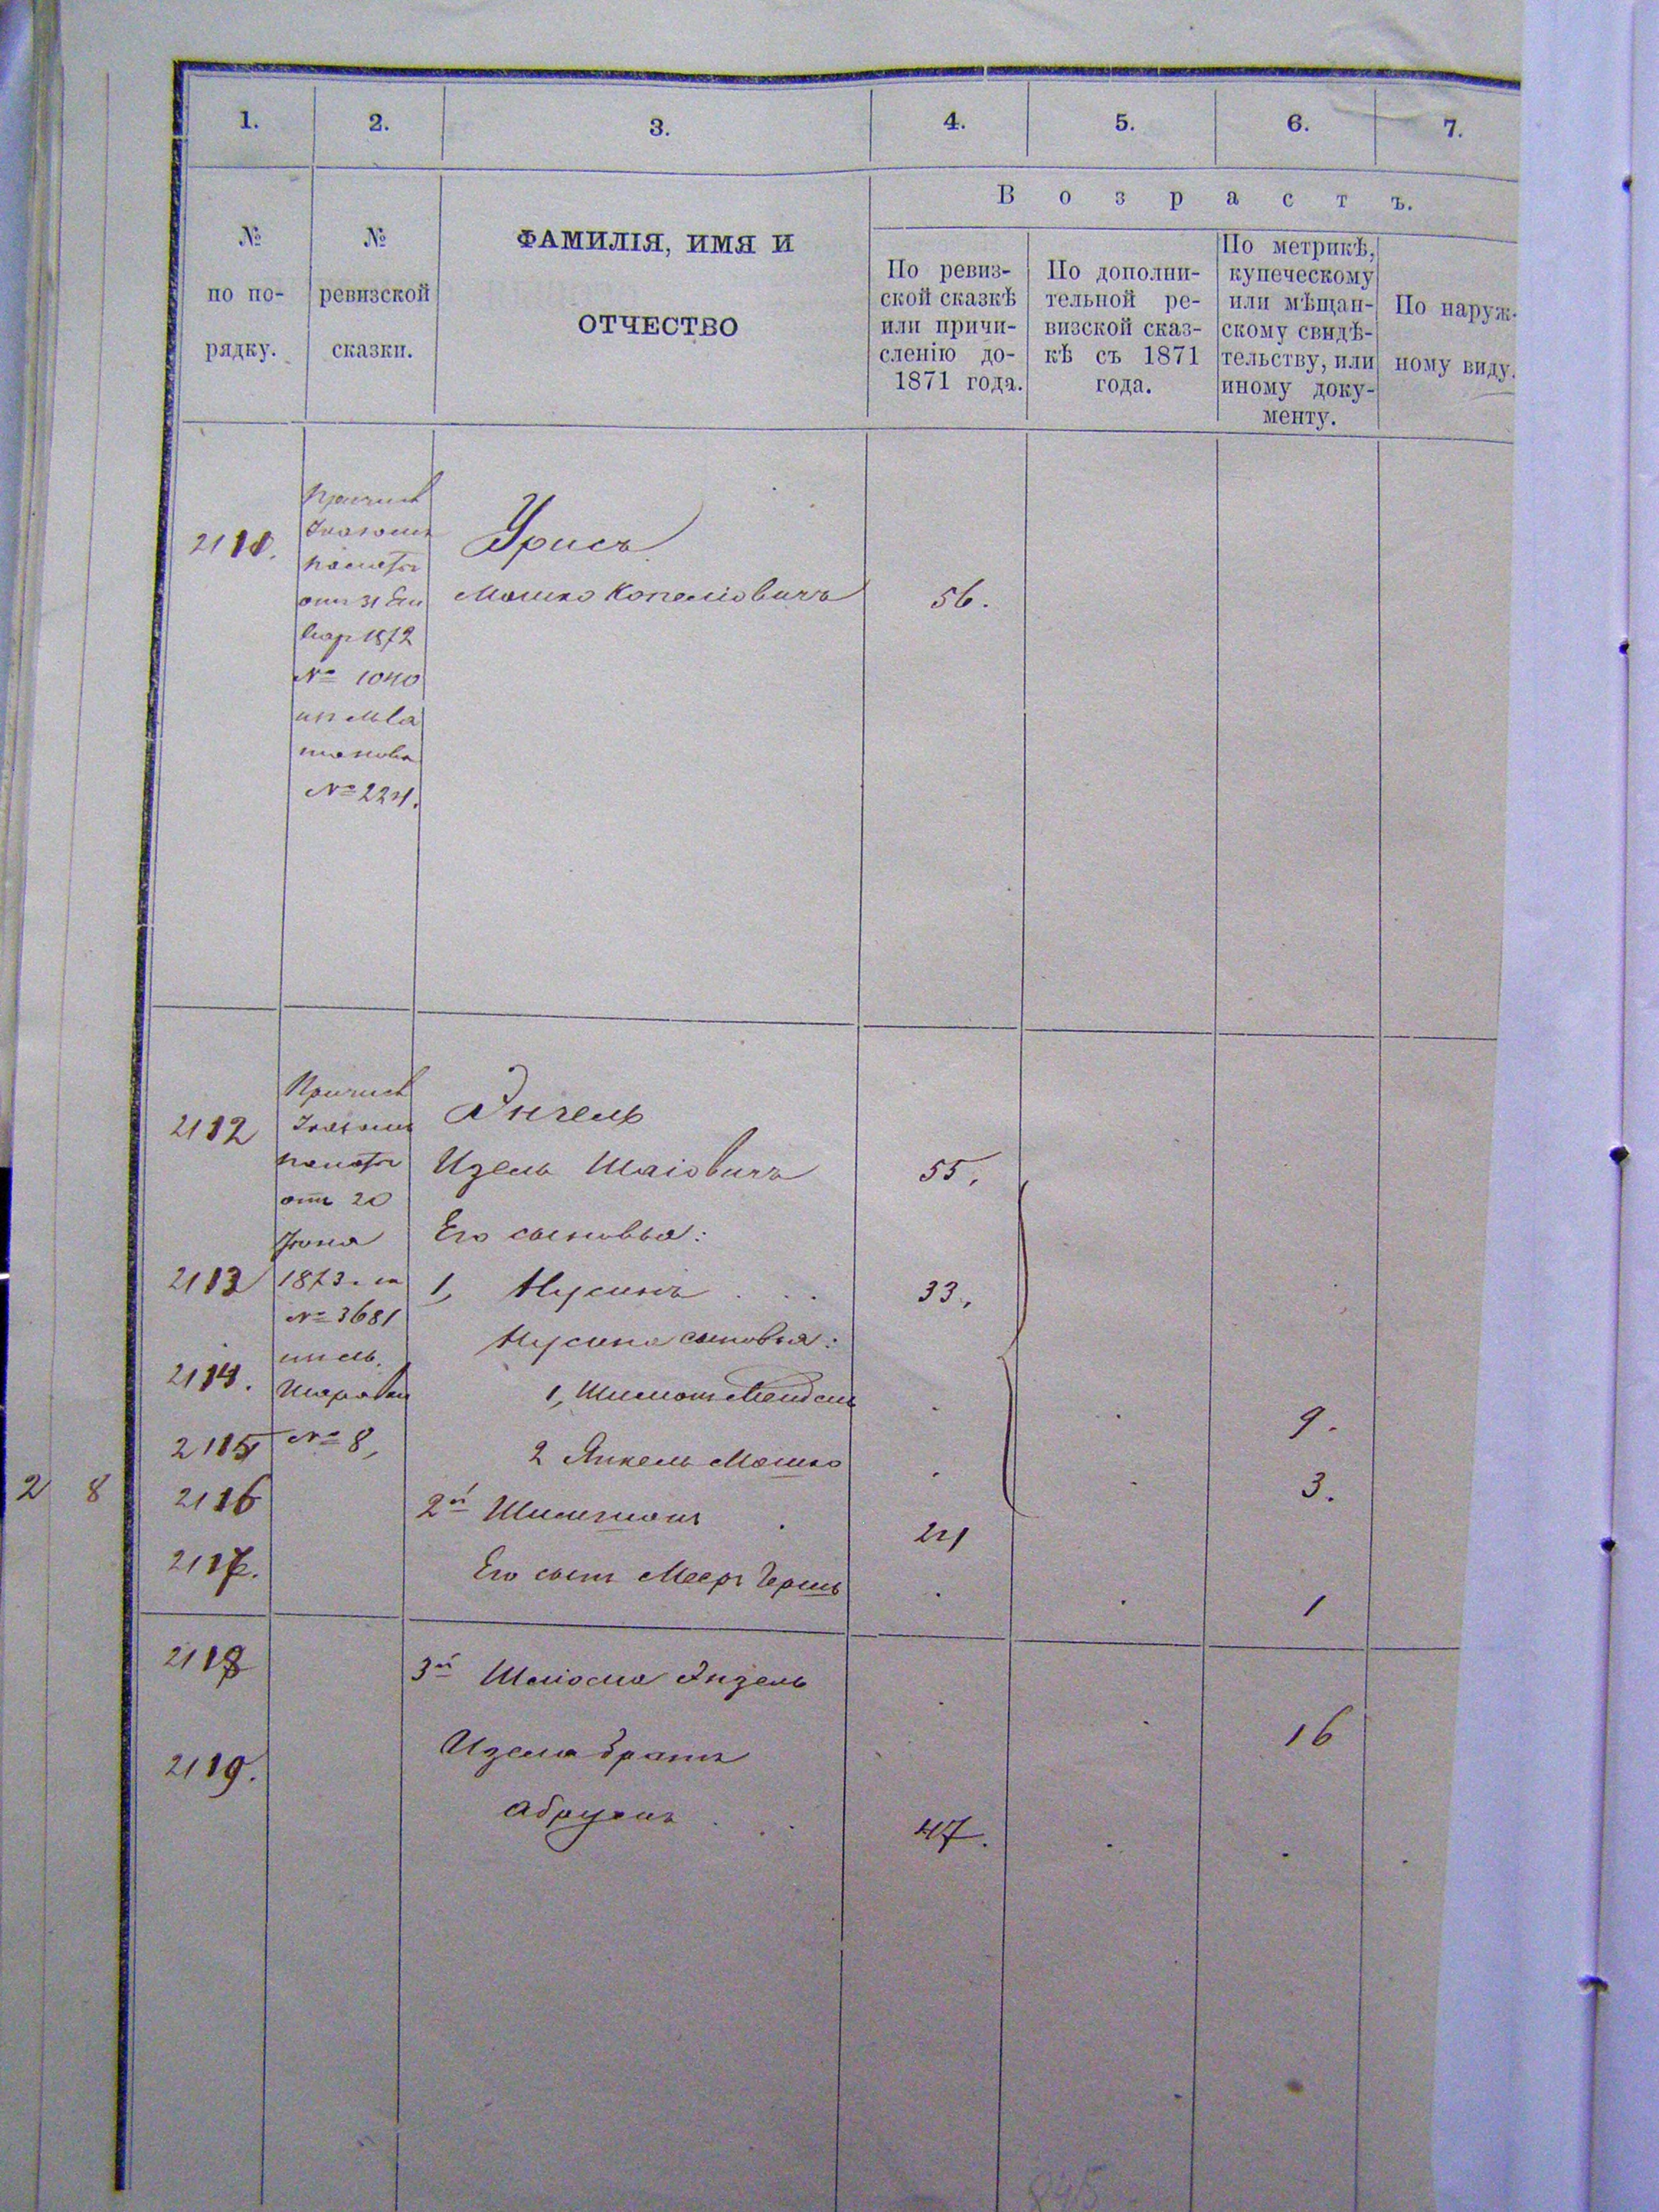 1. 2. 3. 4. 5. 6. 7.
№
по по-
рядку.
№
ревизской
сказки.
ФАМИЛІЯ, ИМЯ И
ОТЧЕСТВО
Возрастъ.
По ревиз-
ской сказкѣ
или причи-
сленію до-
1871 года.
По дополни-
тельной ре-
визской сказ-
кѣ съ 1871
года.
По метрикѣ,
купеческому
или мѣщан-
скому свидѣ-
тельству, или
иному доку-
менту.
По наруж-
ному виду.
Причисл
Указомъ
палаты
отъ 31 Ян
вар 1872
№ 1040
№ 224.
2111.
Урисъ
Мошко Копеліовичъ 56.
Причисл
Указомъ
палаты
отъ 20
Іюня
1873 за
№ 3681
№ 8,
2112 Энгель
Изель Шаіовичъ 55.
Его сыновья:
2113 1, Нусинъ 33.
Нусина сыновья:
2114. 1, Шимонъ Мендель 9.
2115 2 Янкель Мошко 3.
2 8
2116 2й Шимшонъ 24
2117. Его сынъ Мееръ Гершъ 1
2118 3й Шліома Энзель 16
2119. Изеля братъ
47.
845